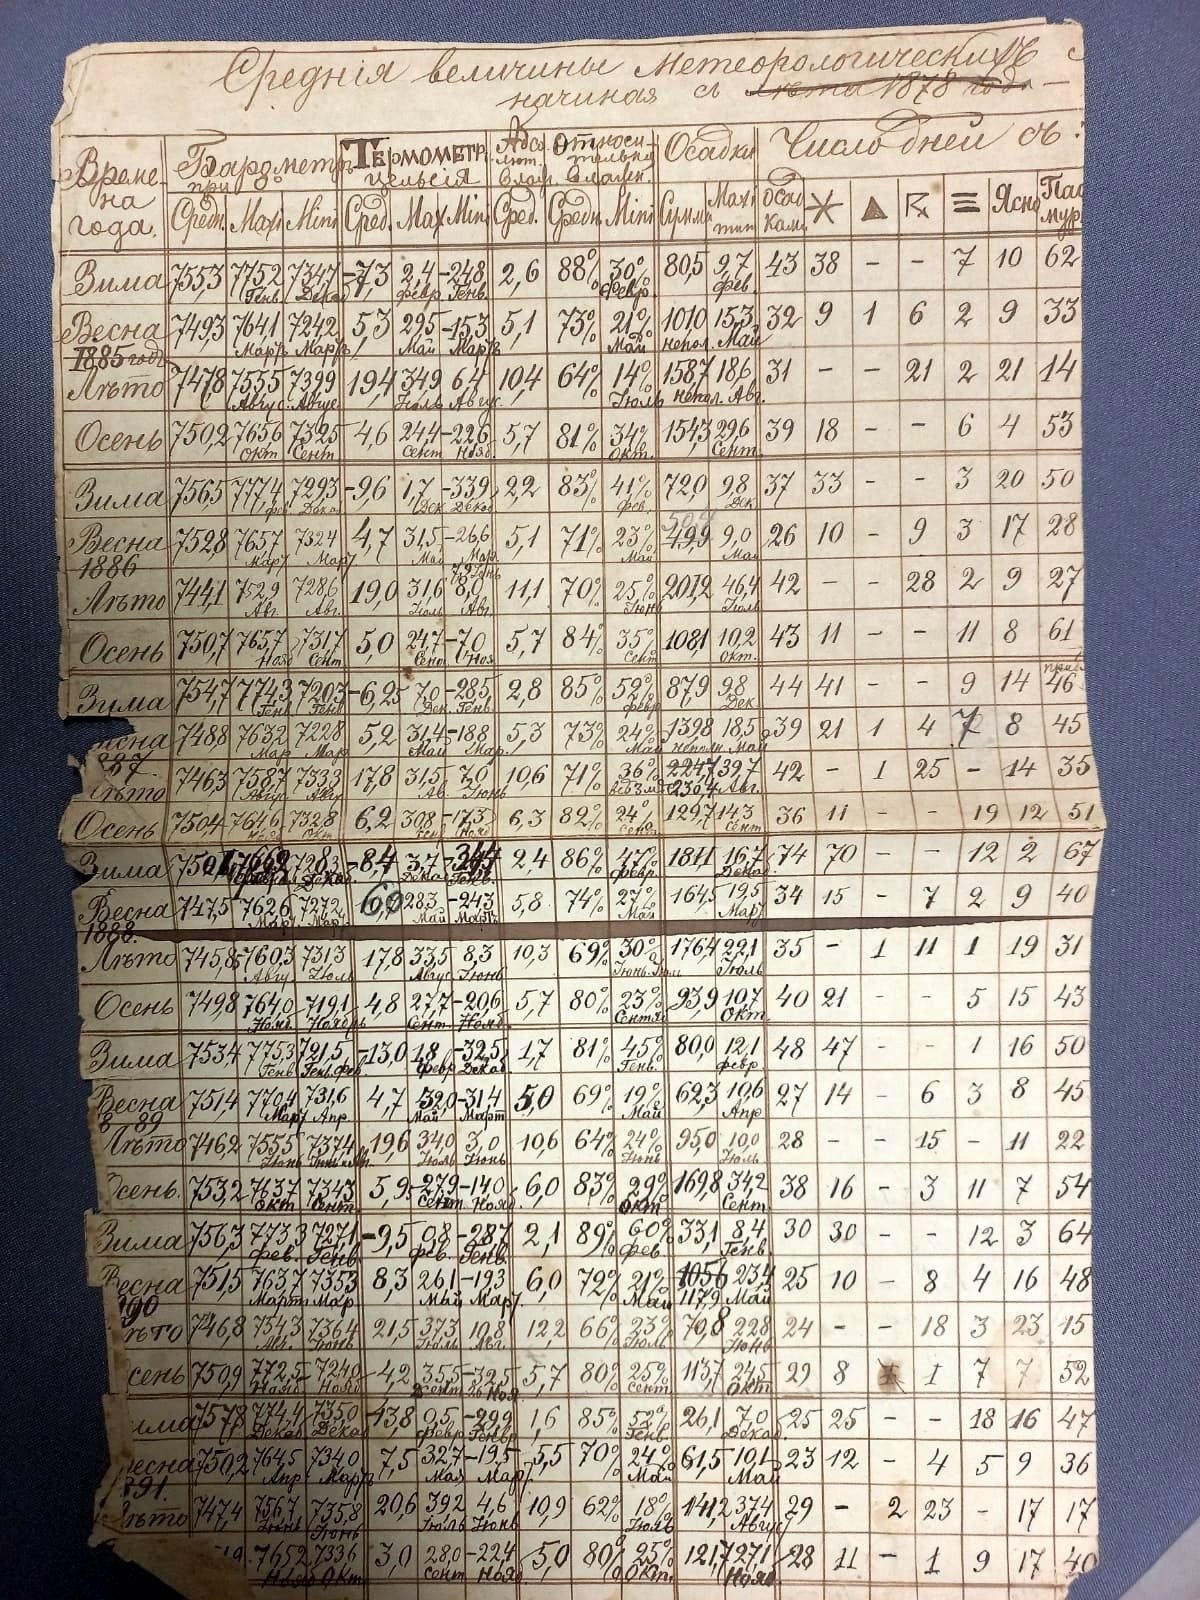 Среднія величины метеорологическихъ
начиная съ лѣта 1878 год.
Време- Барометръ Термометръ Абсо- Относи- Осадки Число дней съ
на при 0° Цельсія лют. тельная
года. Влаж. Влажн.
Средн. Maxi Mini Сред. Max Min. Сред. Средн. Mini Сумма Maxi Осад Ясн Пас
мум ками мур
Зима 755,3 775,2 734,7 -7,3 2,4 -24,8 2,6 88% 30% 80,5 9,7 43 38 - - 7 10 62
Генв. Декаб. Февр. Генв. Февр. Фев.
Весна 749,3 764,1 724,2 5,3 29,5 -15,3 5,1 73% 21% 101,0 15,3 32 9 1 6 2 9 33
1885 годъ Мартъ Мартъ Май Мартъ Май непол. Май
Лѣто 747,8 755,5 739,9 19,4 34,9 6,4 10,4 64% 14% 158,7 18,6 31 - - 21 2 21 14
Авгус. Авгус. Іюль Авгус. Іюль непол. Авг.
Осень 750,2 765,6 732,5 4,6 24,4 -22,6 5,7 81% 34% 154,3 29,6 39 18 - - 6 4 53
Окт Сент Сент Нояб. Окт. Сент.
Зима 756,5 777,4 729,3 -9,6 1,7 -33,9 2,2 83% 41% 72,0 9,8 37 33 - - 3 20 50
фев. Декаб Дек Декаб фев. Дек
Весна 752,8 765,7 732,4 4,7 31,5 -26,6 5,1 71% 23% 49,9 9,0 26 10 - 9 3 17 28
1886 Март Март Май Мар. Май Май
Лѣто 744,1 752,9 728,6 19,0 31,6 8,0 11,1 70% 25% 201,2 46,4 42 - - 28 2 9 27
Авг. Авг. Іюль Авг. Іюнь Іюль
Осень 750,7 765,7 731,7 5,0 24,7 -7,0 5,7 84% 35% 108,1 10,2 43 11 - - 11 8 61
Нояб Сент Сент Нояб Сент Окт.
Зима 754,7 774,3 720,3 -6,25 7,0 -28,5 2,8 85% 52% 87,9 9,8 44 41 - - 9 14 46
Генв Генв Дек. Генв. февр Дек
748,8 763,2 722,8 5,2 31,4 -18,8 5,3 73% 24% 139,8 18,5 39 21 1 4 7 8 45
Мар Мар. Май Мар. Май неполн Май
887. 746,3 758,7 733,3 17,8 31,5 7,0 10,6 71% 36% 224,7 39,7 42 - 1 25 - 14 35
Август Авг Ав. Іюнь 230,4 Авг.
Осень 750,4 764,6 732,8 6,2 30,8 -17,3 6,3 82% 24% 129,7 14,3 36 11 - - 19 12 51
Окт Сент
Зима 766,9 728,3 -8,4 3,7 2,4 86% 47% 184,1 16,7 74 70 - - 12 2 67
Декаб. Декаб Генв. февр. Декаб.
Весна 747,5 762,6 727,2 6,0 28,3 -24,3 5,8 74% 27% 164,5 19,5 34 15 - 7 2 9 40
1888. Мар Март Май Мартъ Май Март
Лѣто 745,8 760,3 731,3 17,8 33,5 8,3 10,3 69% 30% 176,4 22,1 35 - 1 11 1 19 31
Авгу. Іюль Авгус. Іюнь Іюнь Іюл Іюль
Осень 749,8 764,0 719,1 4,8 27,7 -20,6 5,7 80% 23% 93,9 10,7 40 21 - - 5 15 43
Нояб. Ноябрь Сент. Нояб. Сентяб Окт.
Зима 753,4 775,3 721,5 -13,0 1,8 -32,5 1,7 81% 45% 80,0 12,1 48 47 - - 1 16 50
Генв Генв. Фев. февр Декаб Генв. февр.
Весна 751,4 770,1 731,6 4,7 32,0 -31,4 5,0 69% 19% 62,3 10,6 27 14 - 6 3 8 45
8 89 Март Апр Май Март Май Апр
Лѣто 746,2 755,5 737,4 19,6 34,0 3,0 10,6 64% 24% 95,0 10,0 28 - - 15 - 11 22
Іюнь Іюль Іюнь Іюнь Іюль
Осень. 753,2 763,7 734,3 5,9 27,9 -14,0 6,0 83% 29% 169,8 34,2 38 16 - 3 11 7 54
Окт Сент. Сент. Нояб. Окт Сент.
Зима 756,3 773,3 727,1 -9,5 0,8 -28,7 2,1 89% 60% 33,1 8,4 30 30 - - 12 3 64
фев. Генв фев. Генв. фев. Генв.
Весна 751,5 763,7 735,3 8,3 26,1 -19,3 6,0 79% 21% 105,6 23,4 25 10 - 8 4 16 48
890 Март Мар. Май Март. Май 117,9 Май
ѣто 746,8 754,3 736,4 21,5 37,3 10,8 12,2 66% 23% 70,8 22,8 24 - - 18 3 23 15
Авг. Іюнь Іюль Авг. Іюль Іюнь
сень 750,9 772,5 724,0 -4,2 35,5 -32,5 5,7 80% 25% 113,7 24,5 29 8 1 7 7 52
Нояб. Нояб сент 26 Ноя. сент Окт
има 757,8 774,4 735,0 -13,8 0,5 -29,9 1,6 85% 52% 26,1 7,0 25 25 - - 18 16 47
Декаб Декаб февр Генвр Генв. Декаб.
есна 750,2 764,5 734,0 7,5 32,7 -19,5 5,5 70% 24% 61,5 10,1 23 12 - 4 5 9 36
891. Апр Мартъ Мая Март Май Май
ѣто 747,4 756,7 735,8 20,6 39,2 4,6 10,9 62% 18% 141,2 37,4 29 - 2 23 - 17 17
Іюнь Іюнь Іюль Іюнь Іюль Август
765,2 733,6 3,0 28,0 -22,4 5,0 80% 25% 121,7 27,1 28 11 - 1 9 17 40
Нояб Окт. сент Нояб. Окт. Нояб.